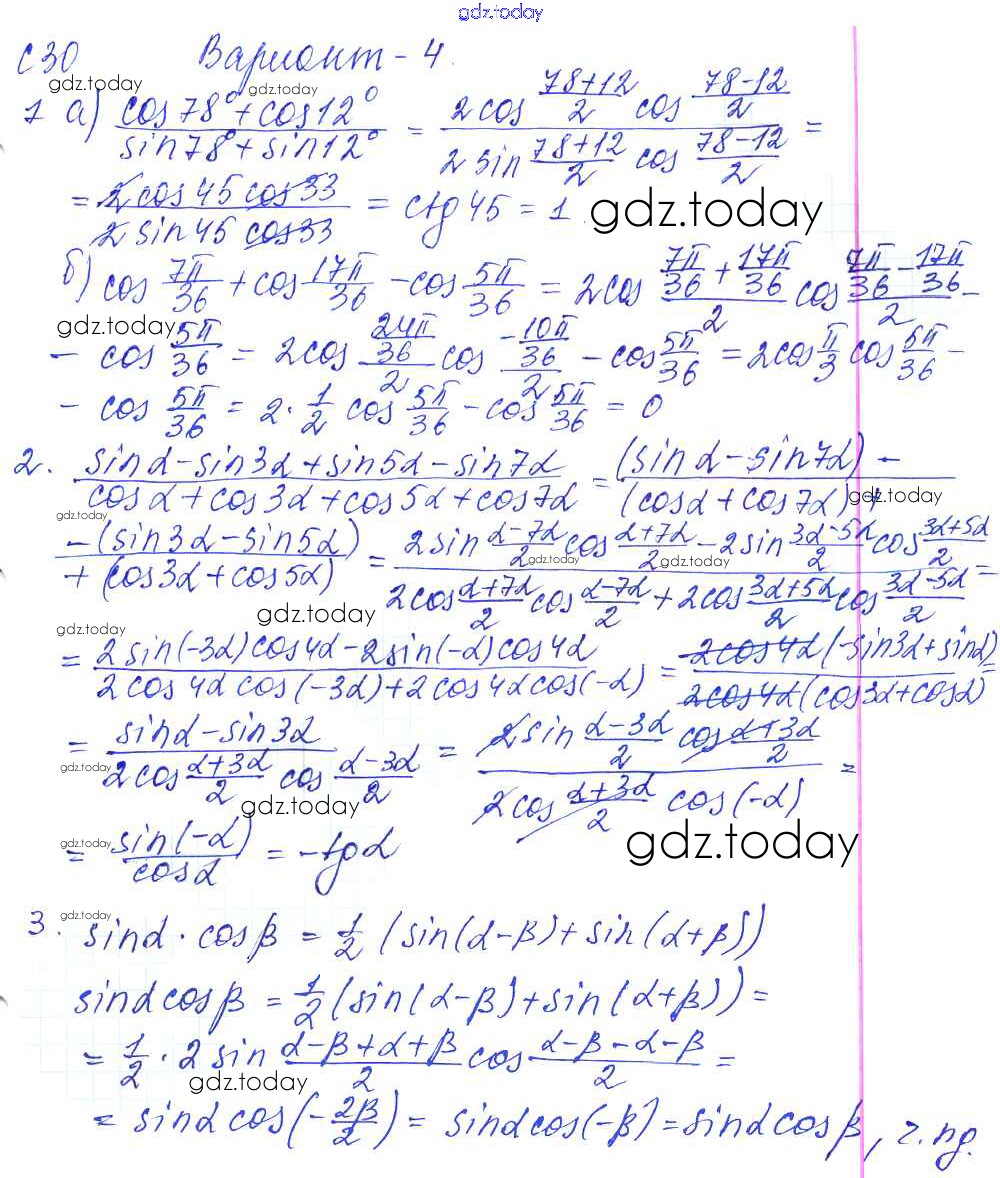 gdz.today
С30 Вариант - 4.
gdz.today gdz.today
1 а) (cos 78° + cos 12°)/(sin 78° + sin 12°) = (2 cos (78+12)/2 cos (78-12)/2)/(2 sin (78+12)/2 cos (78-12)/2) =
= (2 cos 45 cos 33)/(2 sin 45 cos 33) = ctg 45 = 1 gdz.today
б) cos 7π/36 + cos 17π/36 - cos 5π/36 = 2 cos (7π/36 + 17π/36)/2 cos (7π/36 - 17π/36)/2 -
gdz.today
- cos 5π/36 = 2 cos (24π/36)/2 cos (-10π/36)/2 - cos 5π/36 = 2 cos π/3 cos 5π/36 -
- cos 5π/36 = 2 · 1/2 cos 5π/36 - cos 5π/36 = 0
2. (sin α - sin 3α + sin 5α - sin 7α)/(cos α + cos 3α + cos 5α + cos 7α) = ((sin α - sin 7α) -)/((cos α + cos 7α) +)
gdz.today gdz.today
(-(sin 3α - sin 5α))/(+ (cos 3α + cos 5α)) = (2 sin (α-7α)/2 cos (α+7α)/2 - 2 sin (3α-5α)/2 cos (3α+5α)/2)/(2 cos (α+7α)/2 cos (α-7α)/2 + 2 cos (3α+5α)/2 cos (3α-5α)/2) =
gdz.today gdz.today
gdz.today
gdz.today
= (2 sin(-3α) cos 4α - 2 sin(-α) cos 4α)/(2 cos 4α cos(-3α) + 2 cos 4α cos(-α)) = (2 cos 4α (-sin 3α + sin α))/(2 cos 4α (cos 3α + cos α)) =
= (sin α - sin 3α)/(2 cos (α+3α)/2 cos (α-3α)/2) = (2 sin (α-3α)/2 cos (α+3α)/2)/(2 cos (α+3α)/2 cos(-α)) =
gdz.today
gdz.today
= sin(-α)/cos α = -tg α
gdz.today gdz.today
gdz.today
3. sin α · cos β = 1/2 (sin(α-β) + sin(α+β))
sin α cos β = 1/2 (sin(α-β) + sin(α+β)) =
= 1/2 · 2 sin (α-β+α+β)/2 cos (α-β-α-β)/2 =
gdz.today
= sin α cos(-2β/2) = sin α cos(-β) = sin α cos β, ч. тд.